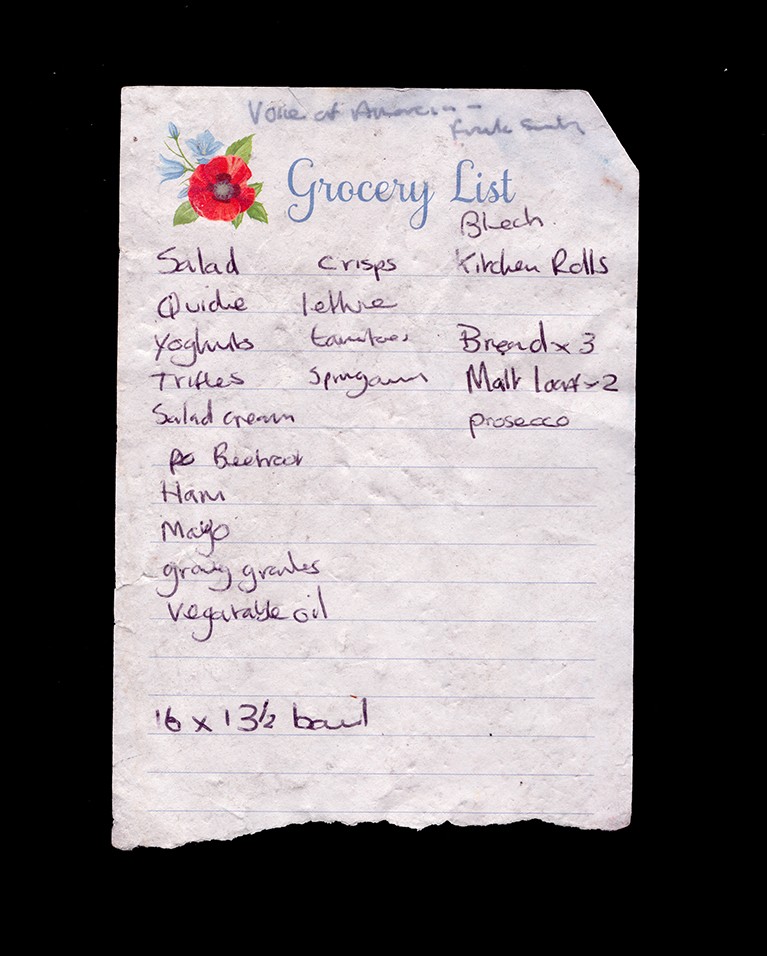 Voice of America --
Frank Smith
Grocery List
Bleach
Salad crisps Kitchen Rolls
Quiche lettuce
Yoghurts tomatoes Bread x 3
Trifles Springonions Malt loaf x 2
Salad cream prosecco
po Beetroot
Ham
Mayo
gravy granules
Vegatable oil
16 x 13½ bowl